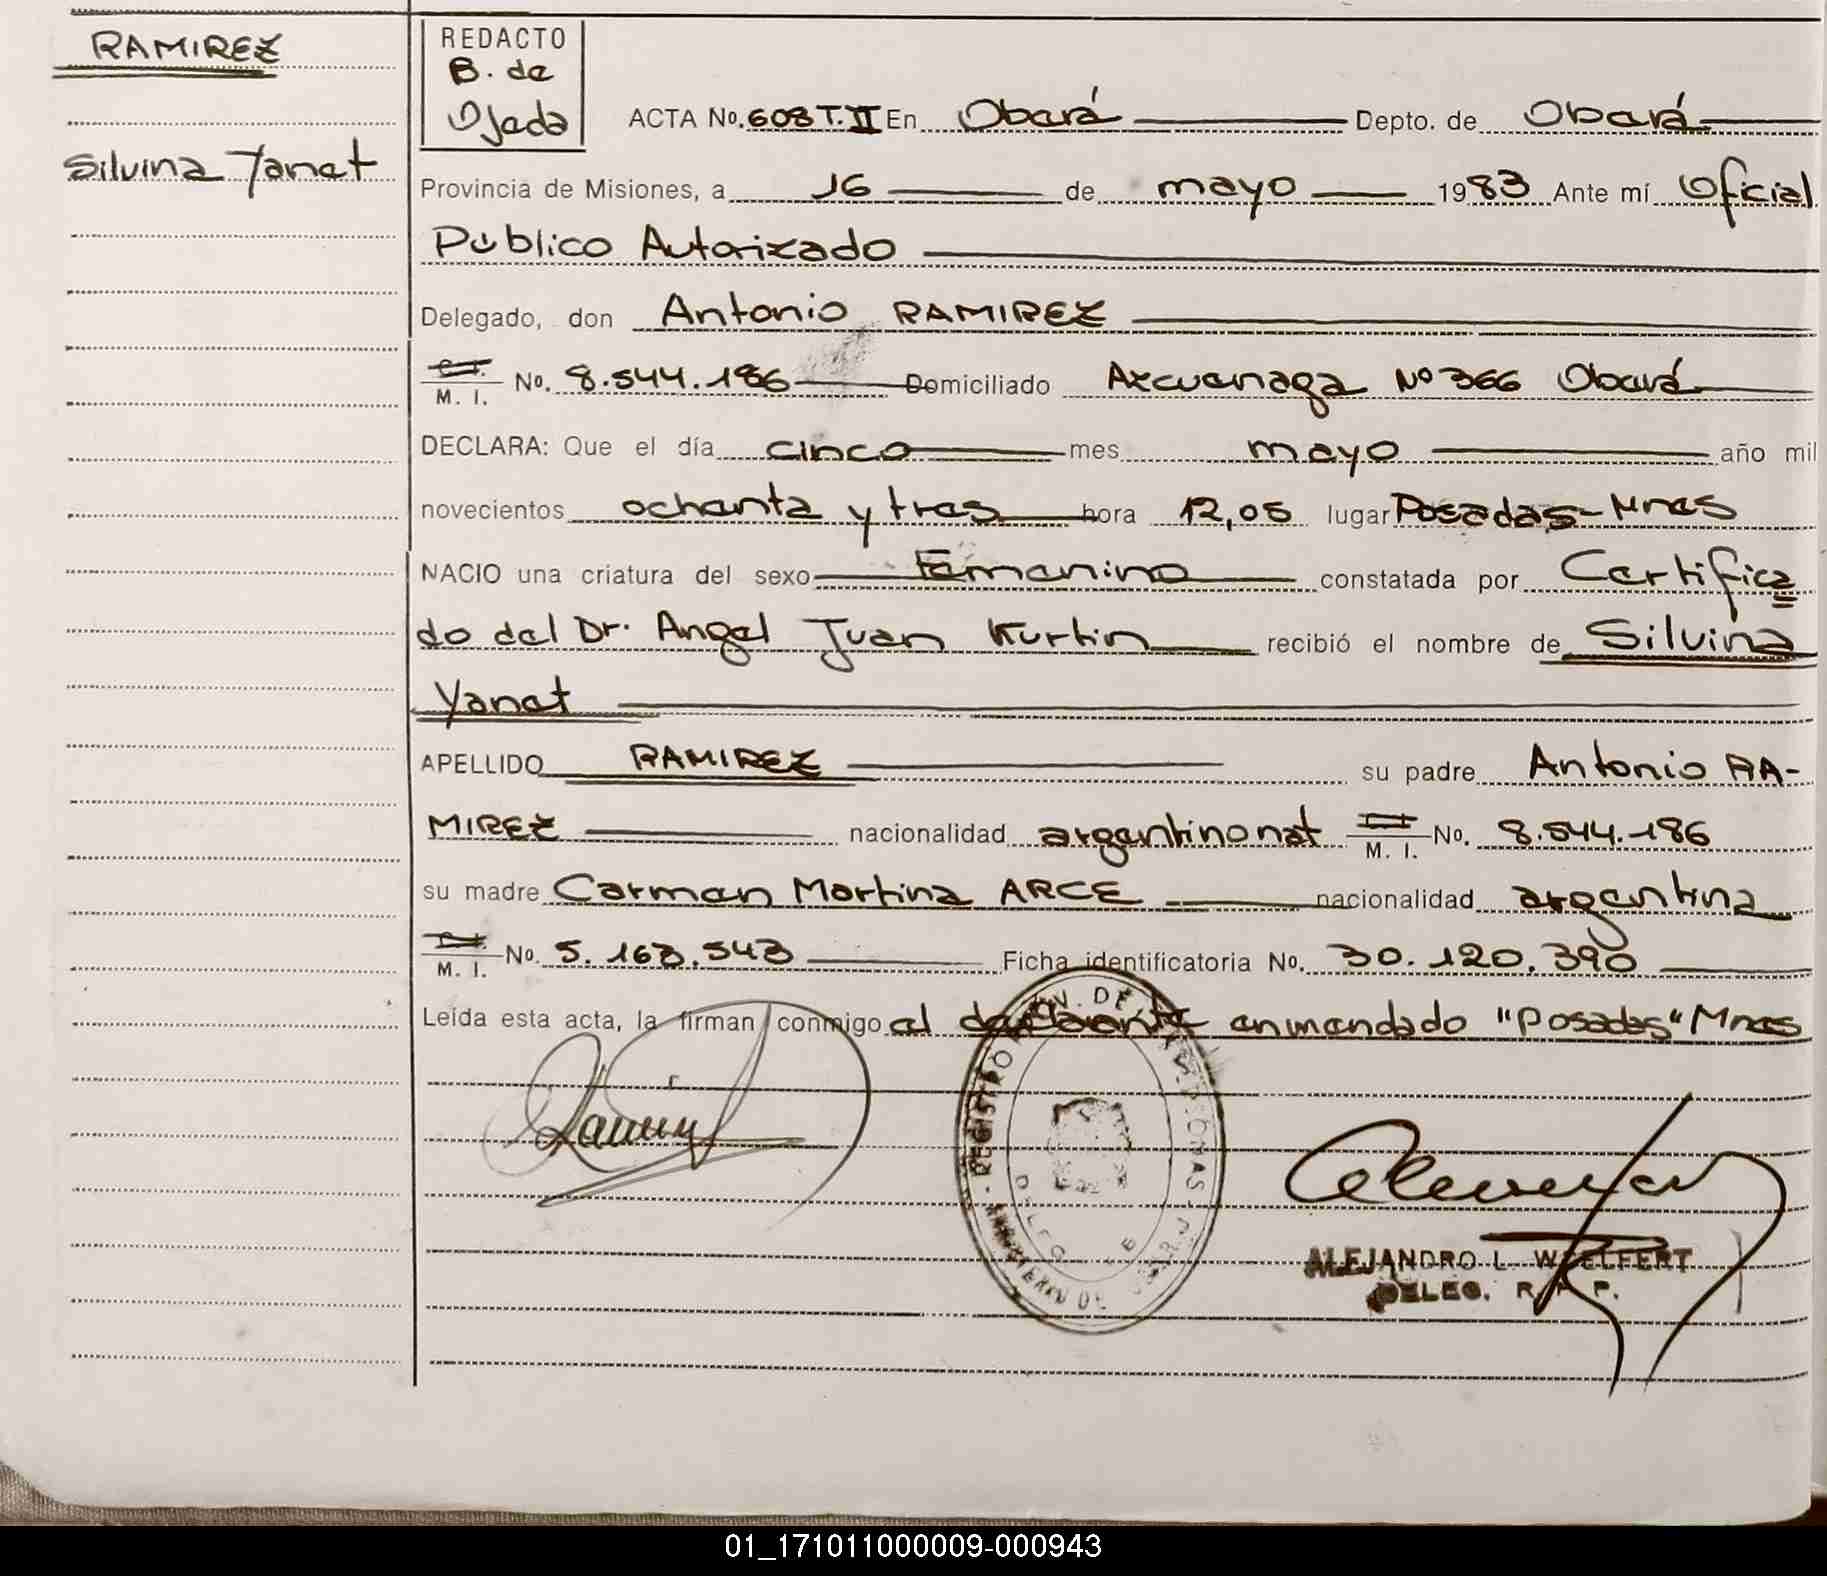 RAMIREZ
Silvina Yanet
REDACTO
B. de
Ojeda
ACTA No. 608 T. II En Oberá Depto. de Oberá
Provincia de Misiones, a 16 de mayo 1983 Ante mí Oficial
Público Autorizado
Delegado, don Antonio RAMIREZ
M. I. No. 8.544.186 Domiciliado Azcuenaga Nº 366 Oberá
DECLARA: Que el día cinco mes mayo año mil
novecientos ochenta y tres hora 12,05 lugar Posadas-Mnes
NACIO una criatura del sexo Femenino constatada por Certifica
do del Dr. Angel Juan Kurtin recibió el nombre de Silvina
Yanet
APELLIDO RAMIREZ su padre Antonio RA-
MIREZ nacionalidad argentino nat M. I. No. 8.544.186
su madre Carmen Martina ARCE nacionalidad argentina
M. I. No. 5.163.543 Ficha identificatoria No. 30.120.390
Leída esta acta, la firman conmigo el declarante enmendado "Posadas" Mnes
REGISTRO PROV. DE LAS PERSONAS
ALEJANDRO L. WOELFERT
DELEG. R. P. P.
01_171011000009-000943